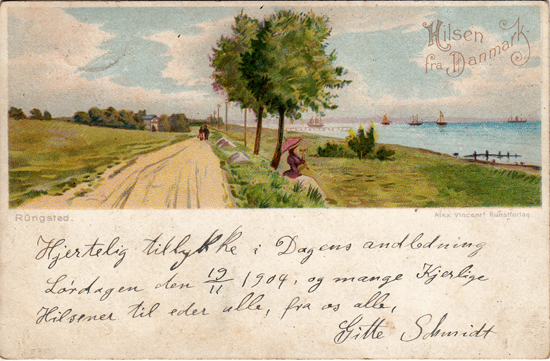 Hilsen
fra Danmark.
Rüngsted.
Alex Vincent Kunstforlag
Hjertelig tillykke i Dagens andledning
Lórdagen den 19/11 1904, og mange Kjerlige
Hilsener til eder alle, fra os alle,
Gitte Schmidt